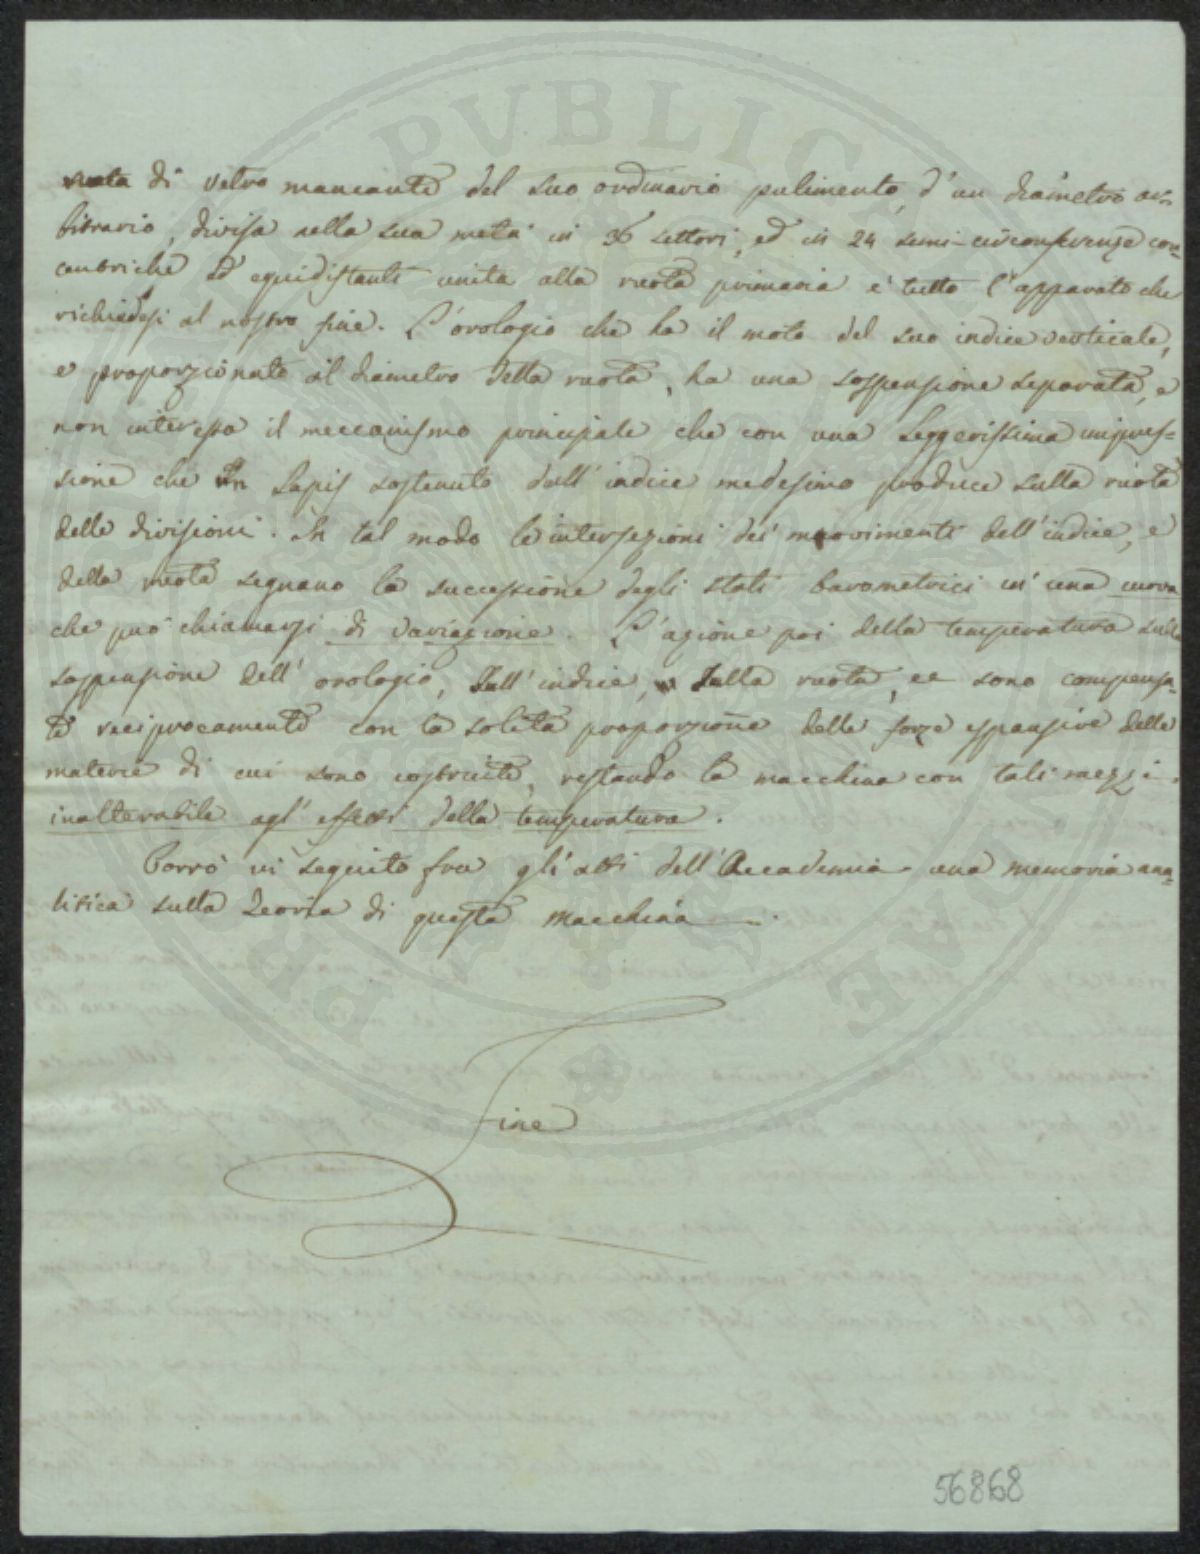 ruota di vetro mancante del suo ordinario pulimento, d'un diametro ar-
bitrario, divisa nella sua metà in 36 settori, ed in 24 semi-circonferenze con-
centriche ed equidistanti unita alla ruota primaria è tutto l'apparato che
richiedesi al nostro fine. L'orologio che ha il moto del suo indice verticale,
e proporzionato al diametro della ruota, ha una sospensione separata, e
non interessa il meccanismo principale che con una leggerissima impres-
sione che un lapis sostenuto dall'indice medesimo produce sulla ruota
delle divisioni. In tal modo le intersezioni dei movimenti dell'indice, e
della ruota segnano la successione degli stati barometrici in una curva
che può chiamarsi di variazione. L'azione poi della temperatura sulla
sospensione dell'orologio, sull'indice, sulla ruota, ec sono compensa-
te reciprocamente con la solita proporzione delle forze espansive delle
materie di cui sono costruite, restando la macchina con tali mezzi
inalterabile agl'effetti della temperatura.
Porrò in seguito fra gli atti dell'Accademia una memoria ana-
litica sulla Teoria di questa macchina.
Fine
56868
PUBLICAE